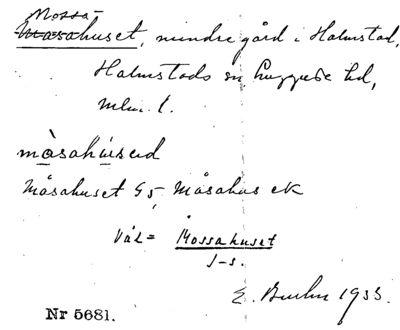 Mossa-
Måsahuset, mindre gård i Halmstad,
Halmstads sn, Luggude hd,
Mlm. l.
måsahúsed
Måsahuset G5, Måsahus ek
Val = Mossahuset
J-s.
E. 1933.
Nr 5681.